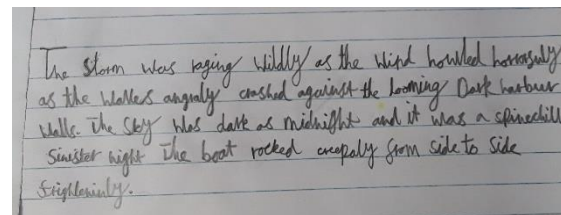 The storm was raging wildly as the wind howlled horrasuly
as the wallers angraly crashed against the looming Dark harbour
walls. The sky was dark as midnight and it was a spinechill
sinister night The boat rocked creepaly from side to side
frighteninly.